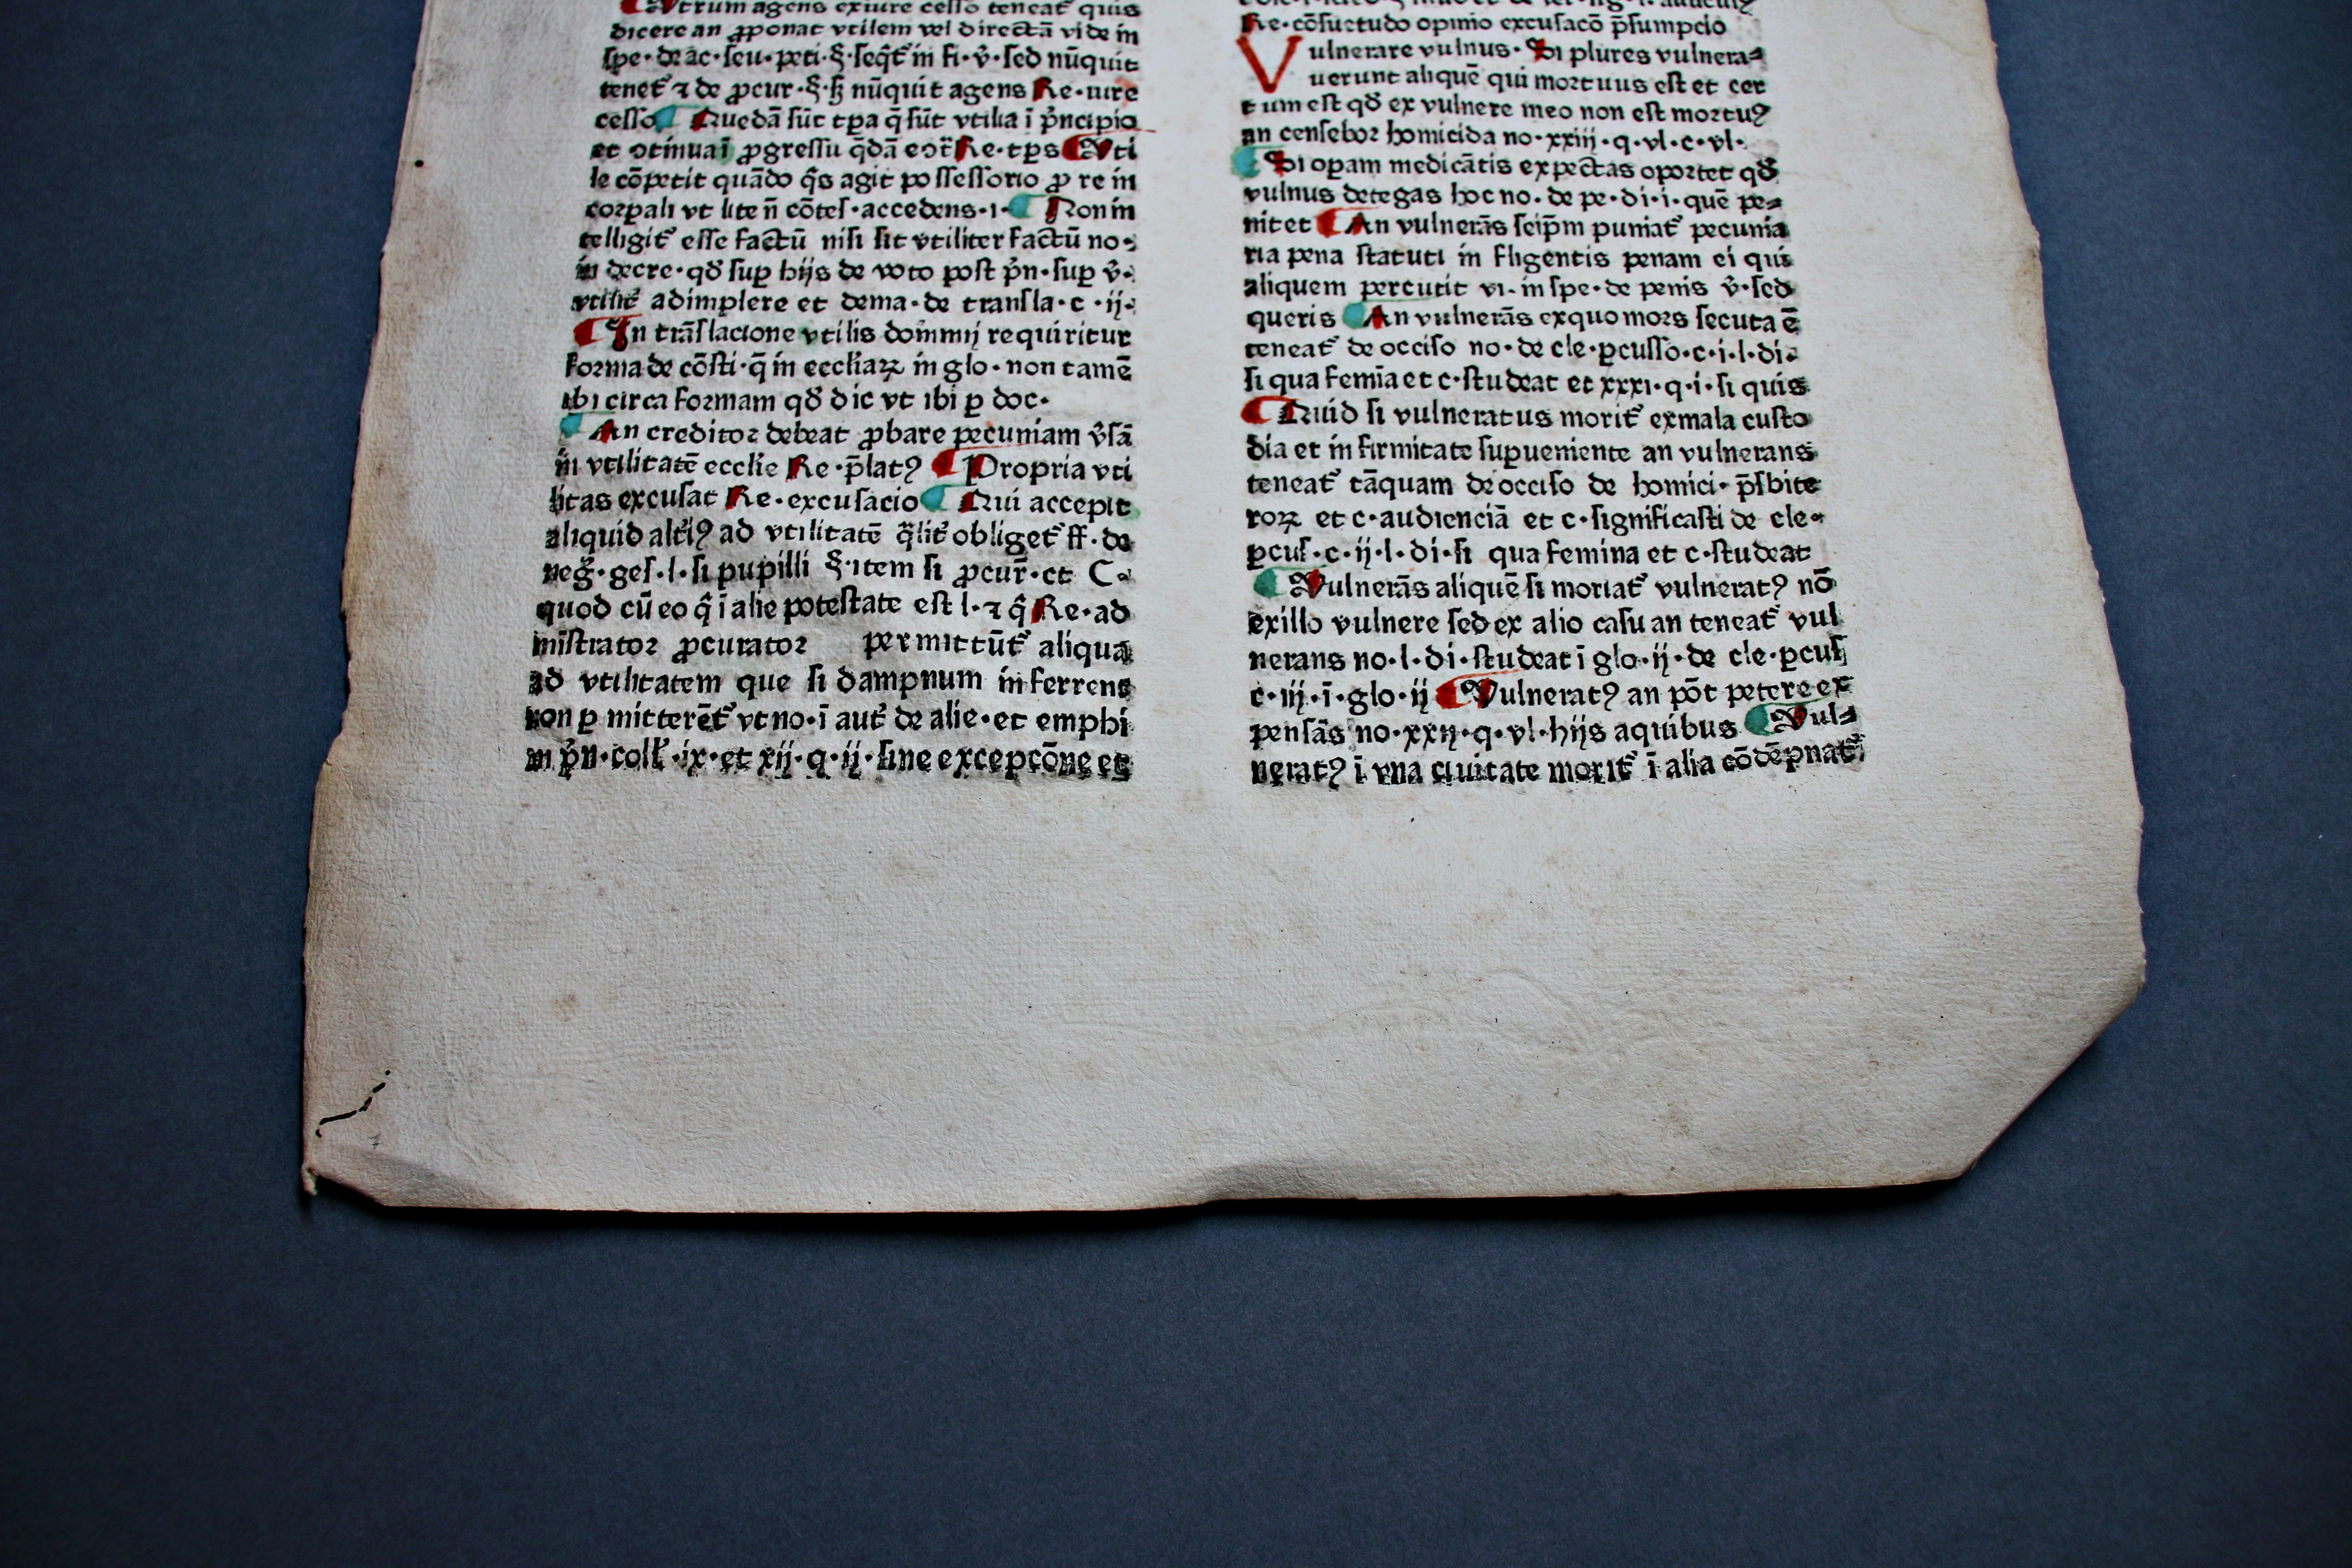 Utrum agens exiure cesso teneat᷑ quis
dicere an ꝓponat vtilem vel directã vide in
spe·de ac·seu·peti·§·seqt᷑ in fi·v̉·sed nũquit
tenet᷑ ⁊ de ꝓcur·§·ẜ nũquit agens Re·iure
cesso Quedã sũt tꝑa q̃ sũt vtilia ĩ p̉ncipio
et ꝯtinuaĩ ꝓgressu q̃dã ecõt᷑ Re·tꝑs Uti
le cõpetit quãdo q̉s agit possessorio ꝓ re in
corꝑali vt lite ñ cõtes·accedens·i· Non in
telligit᷑ esse factũ nisi sit vtiliter factũ no·
in decre·qđ suꝑ hijs de voto post p̉n·suꝑ v̉·
vtilit᷑ adimplere et dema·de transla·c·ij·
In trãslacione vtilis dominij requiritur
forma de cõsti·q̃ in eccliaꝝ in glo·non tamẽ
ibi circa formam qđ dic vt ibi ꝑ doc·
An creditor debeat ꝓbare pecuniam v̉sã
in vtilitatẽ ecclie Re·p̃latꝰ Propria vti
litas excusat Re·excusacio Qui accepit
aliquid alt᷑iꝰ ad vtilitatẽ q̃lit᷑ obliget᷑ ff·de
neg̃·ges·l·si pupilli §·item si ꝓcur̃·et C·
quod cũ eo q̉ ĩ alie potestate est l·⁊ q̉ Re·ad
mĩstrator ꝓcurator permittũt᷑ aliqua
ad vtilitatem que si dampnum inferrent
non ꝑmitterẽt᷑ vt no·ĩ aut᷑ de alie·et emphi
in p̉n·coll᷑·ix·et xij·q·ij·sine excepcõne et
Re·cõsuetudo opinio excusacõ p̃sumpcio
Vulnerare vulnus·Si plures vulnera⸗
uerunt aliquẽ qui mortuus est et cer
tum est qđ ex vulnere meo non est mortuꝰ
an censebor homicida no·xxiij·q·vl·c·vl·
Si opam medicãtis expectas oportet qđ
vulnus detegas hoc no·de pe·di·i·quẽ pe⸗
nitet An vulnerãs seip̃m puniat᷑ pecunia
ria pena statuti infligentis penam ei qui
aliquem percutit vi·in spe·de penis v̉·sed
queris An vulnerãs exquo mors secuta ẽ
teneat᷑ de occiso no·de cle·ꝑcusso·c·i·l·di·
si qua femĩa et c·studeat et xxxi·q·i·si quis
Quid si vulneratus morit᷑ exmala custo
dia et infirmitate suꝑueniente an vulnerans
teneat᷑ tãquam de occiso de homici·p̃sbite
roꝝ et c·audienciã et c·significasti de cle·
ꝑcus·c·ij·l·di·si qua femina et c·studeat
Vulnerãs aliquẽ si moriat᷑ vulneratꝰ nõ
exillo vulnere sed ex alio casu an teneat᷑ vul
nerans no·l·di·studeat ĩ glo·ij·de cle·ꝑcus
c·iij·ĩ·glo·ij Vulneratꝰ an põt petere ex
pensãs no·xxij·q·vl·hijs aquibus Vul⸗
neratꝰ ĩ vna ciuitate morit᷑ ĩ alia cõdẽpnat᷑